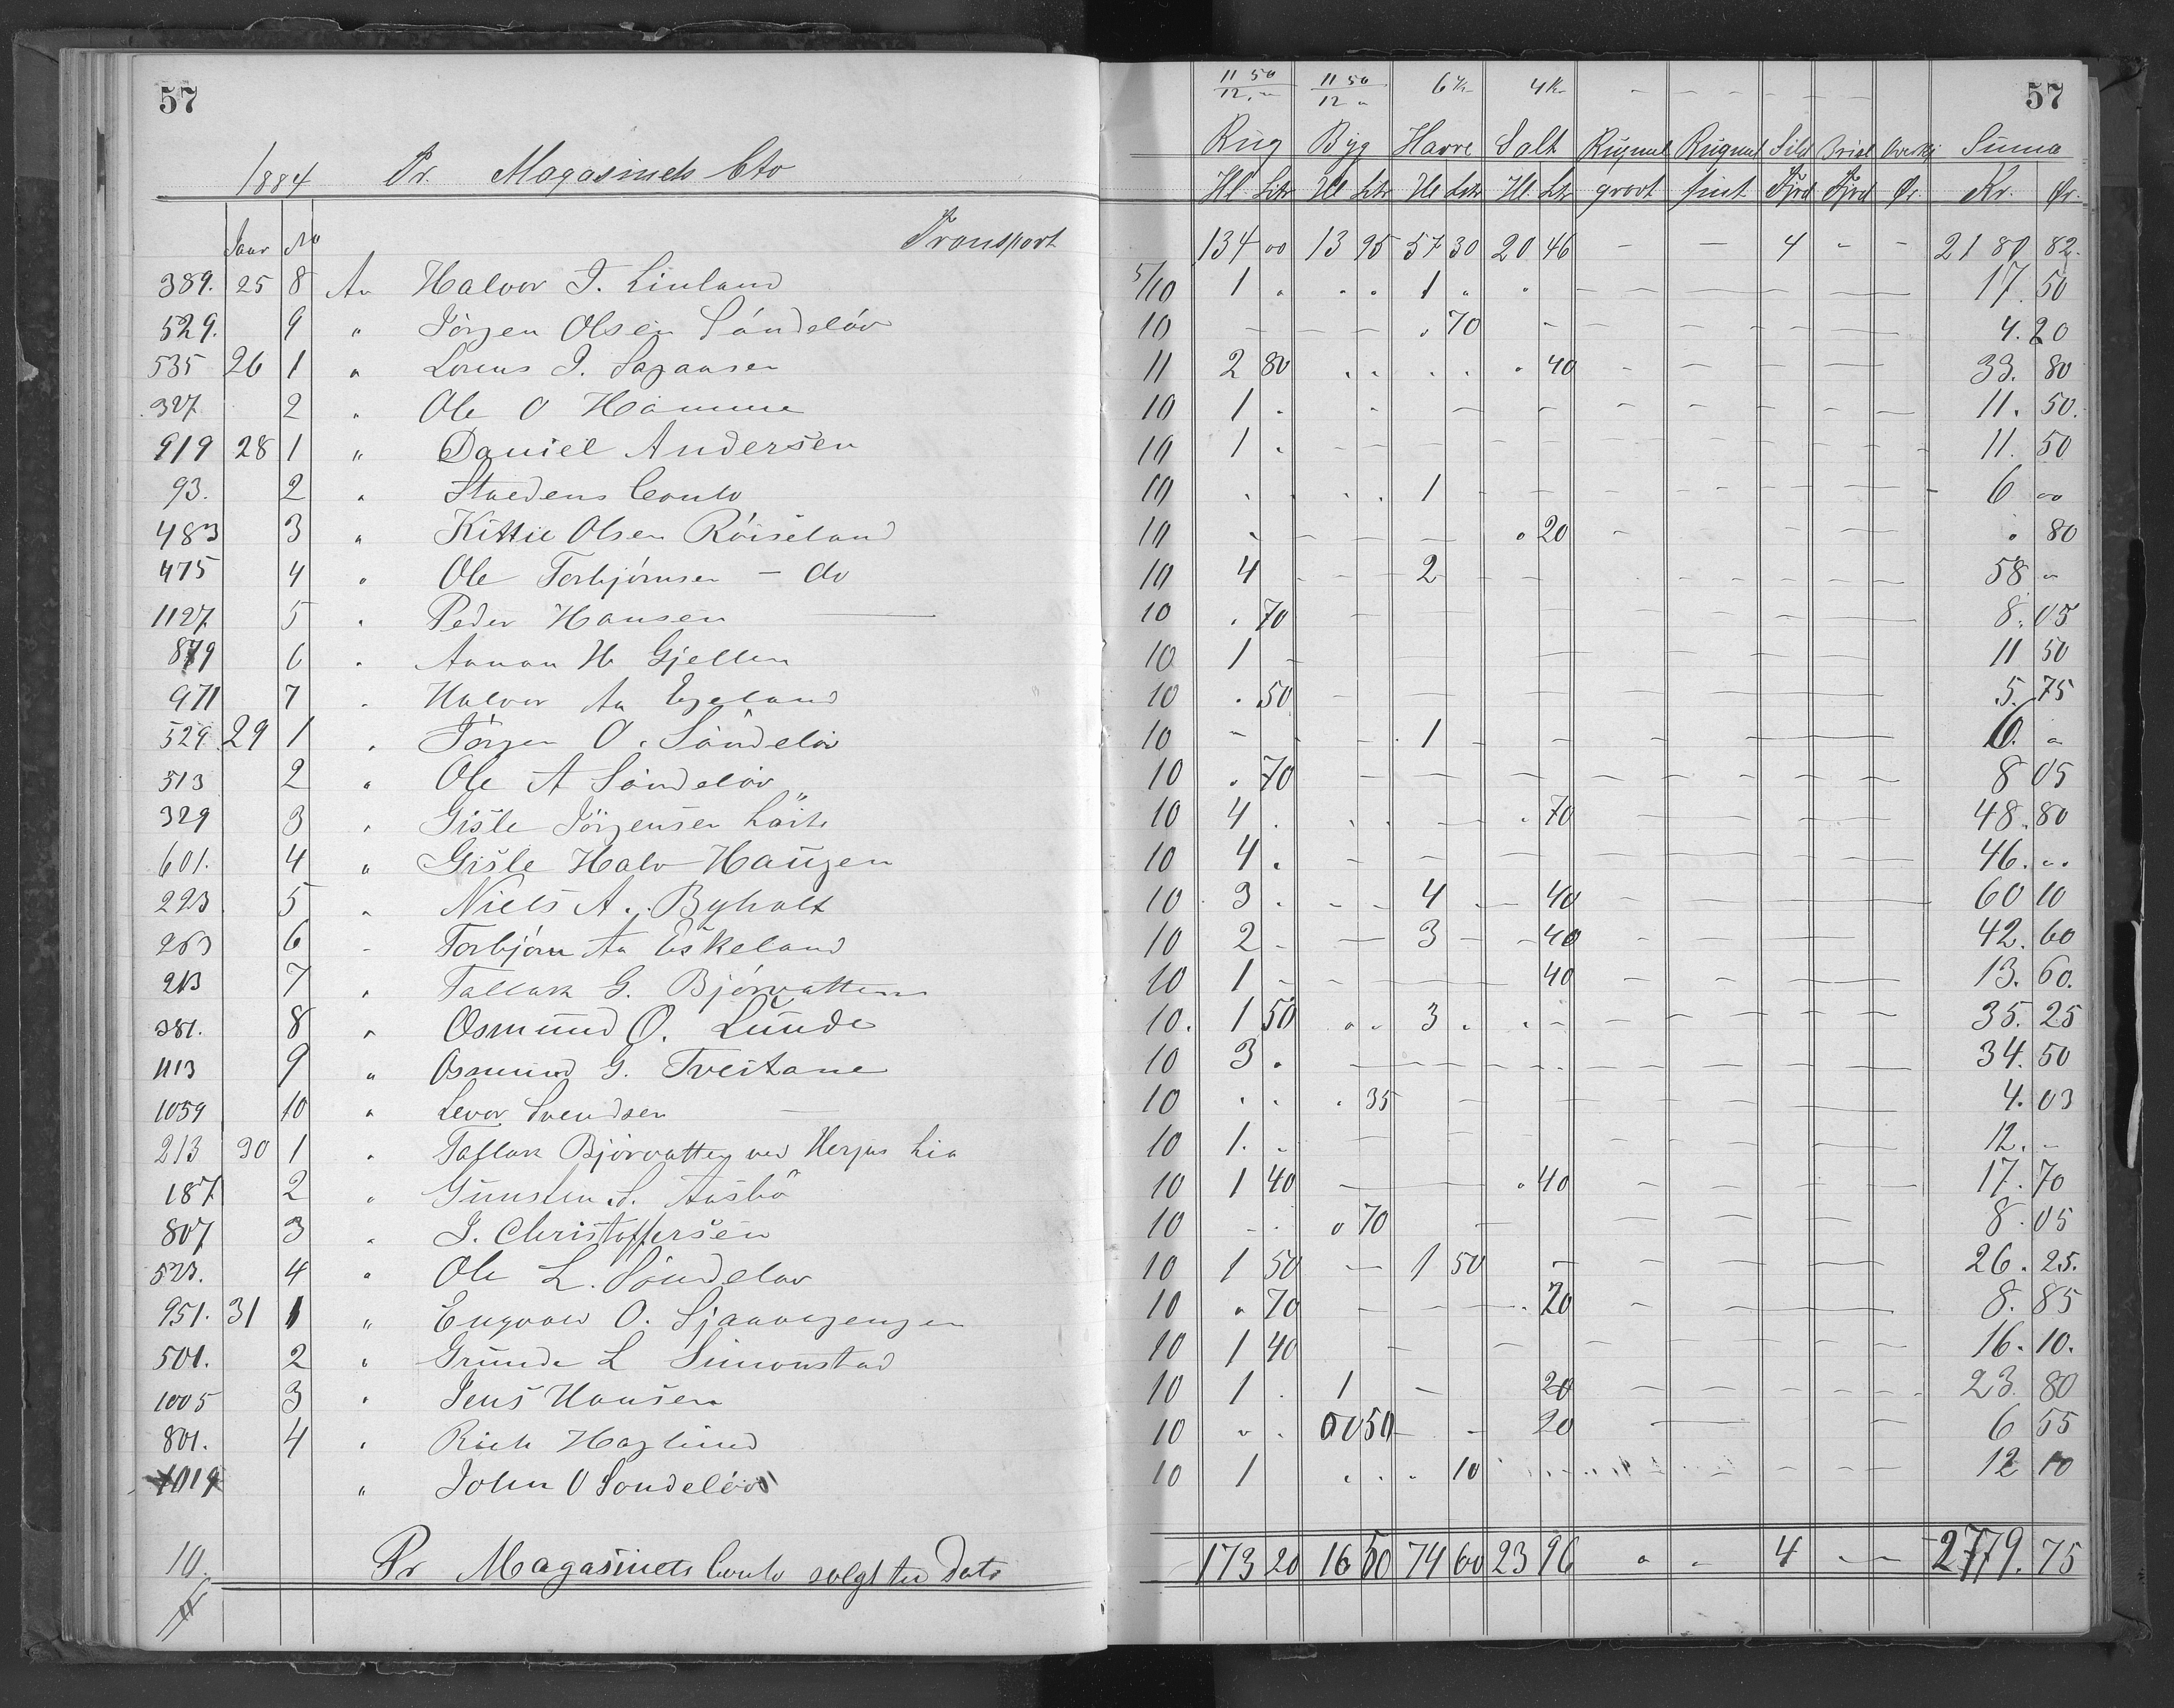 57
1884 Pr. Magasinets Cto
Jaar No Transport
389. 25 8 An Halvor T. Linland
529. 9 " Jörgen Olsen Söndelöv
535 26 1 " Lorens J.
327 2 " Ole O Hamme
919 28 1 " Daniel Andersen
93. 2 " Stædens Conto
483 3 " Kittil Olsen Röiseland
475 4 " Ole Torbjörnsen - do
1127 5 " Peder Hansen
879 6 " Aanon H. Gjellen
971 7 " Halvor Aa Egeland
529 29 1 " Jörgen O. Söndelöv
513 2 " Ole A Söndelöv
329 3 " Gisle Jörgensen
601. 4 " Gisle Halv Haugen
223 5 " Niels A. Byholt
263 6 " Torbjörn Aa Eskeland
213 7 " Tallak G. Bjorvatten
381. 8 " Osmund O. Lunde
1113 9 " Osmund G. Tveitane
1059 10 " Levor Svendsen
213 30 1 " Tallak Bjorvatten ved Herjus Lia
187 2 " Gunsten S. Aasbö
807 3 " J. Christoffersen
523. 4 " Ole L. Söndelöv
951. 31 1 " Engvald O.
501. 2 " Grunde L Simonstad
1005 3 " Jens Hansen
801. 4 " Rich Haglund
1019 " John O Sondelöv
10. Pr Magasinets Conto solgt til Dato
57
11 50 11 50 6 Kr 4 Kr - - - - - -
12. " 12 "
Rug Byg Havre Salt Rugmel Rugmel Sild Summa
Hl Ltr Hl Ltr Hl Ltr Hl. Ltr grovt fint Kr. Ør.
134 00 13 95 57 30 20 46 - - 4 - - 2180 82.
5/10 1 " " " 1 " " 17. 50
10 - - - . 70 - 4. 20
11 2 80 . . . . . 40 33. 80
10 1 . 11. 50.
10 1 . 11. 50
10 . . . . 1 6 00
10 . - - - . 20 . 80
10 4 - - - 2 58 "
10 . 70 8. 05
10 1 - 11 50
10 . 50 5. 75
10 - - - . 1 6. "
10 . 70 8 05
10 4 . . . 70 48. 80
10 4 . 46. ..
10 3 . - - 4 - 40 60 10
10 2 - - 3 - - 40 42. 60
10 1 - - 40 13. 60.
10. 1 50 " " 3 . . - 35. 25
10 3 . 34. 50
10 . . . 35 4. 03
10 1. . 12. -
10 1 40 - - . 40 17. 70
10 - . . 70 8. 05
10 1 50 - 1 50 - 26. 25.
10 " 70 - - . 20 8. 85
10 1 40 16. 10.
10 1 . 1 - 20 23. 80
10 " . 0050 - - 20 6 55
10 1 . . . 10 12 10
173 20 16 50 74 60 23 96 " - 4 - - 2779. 75